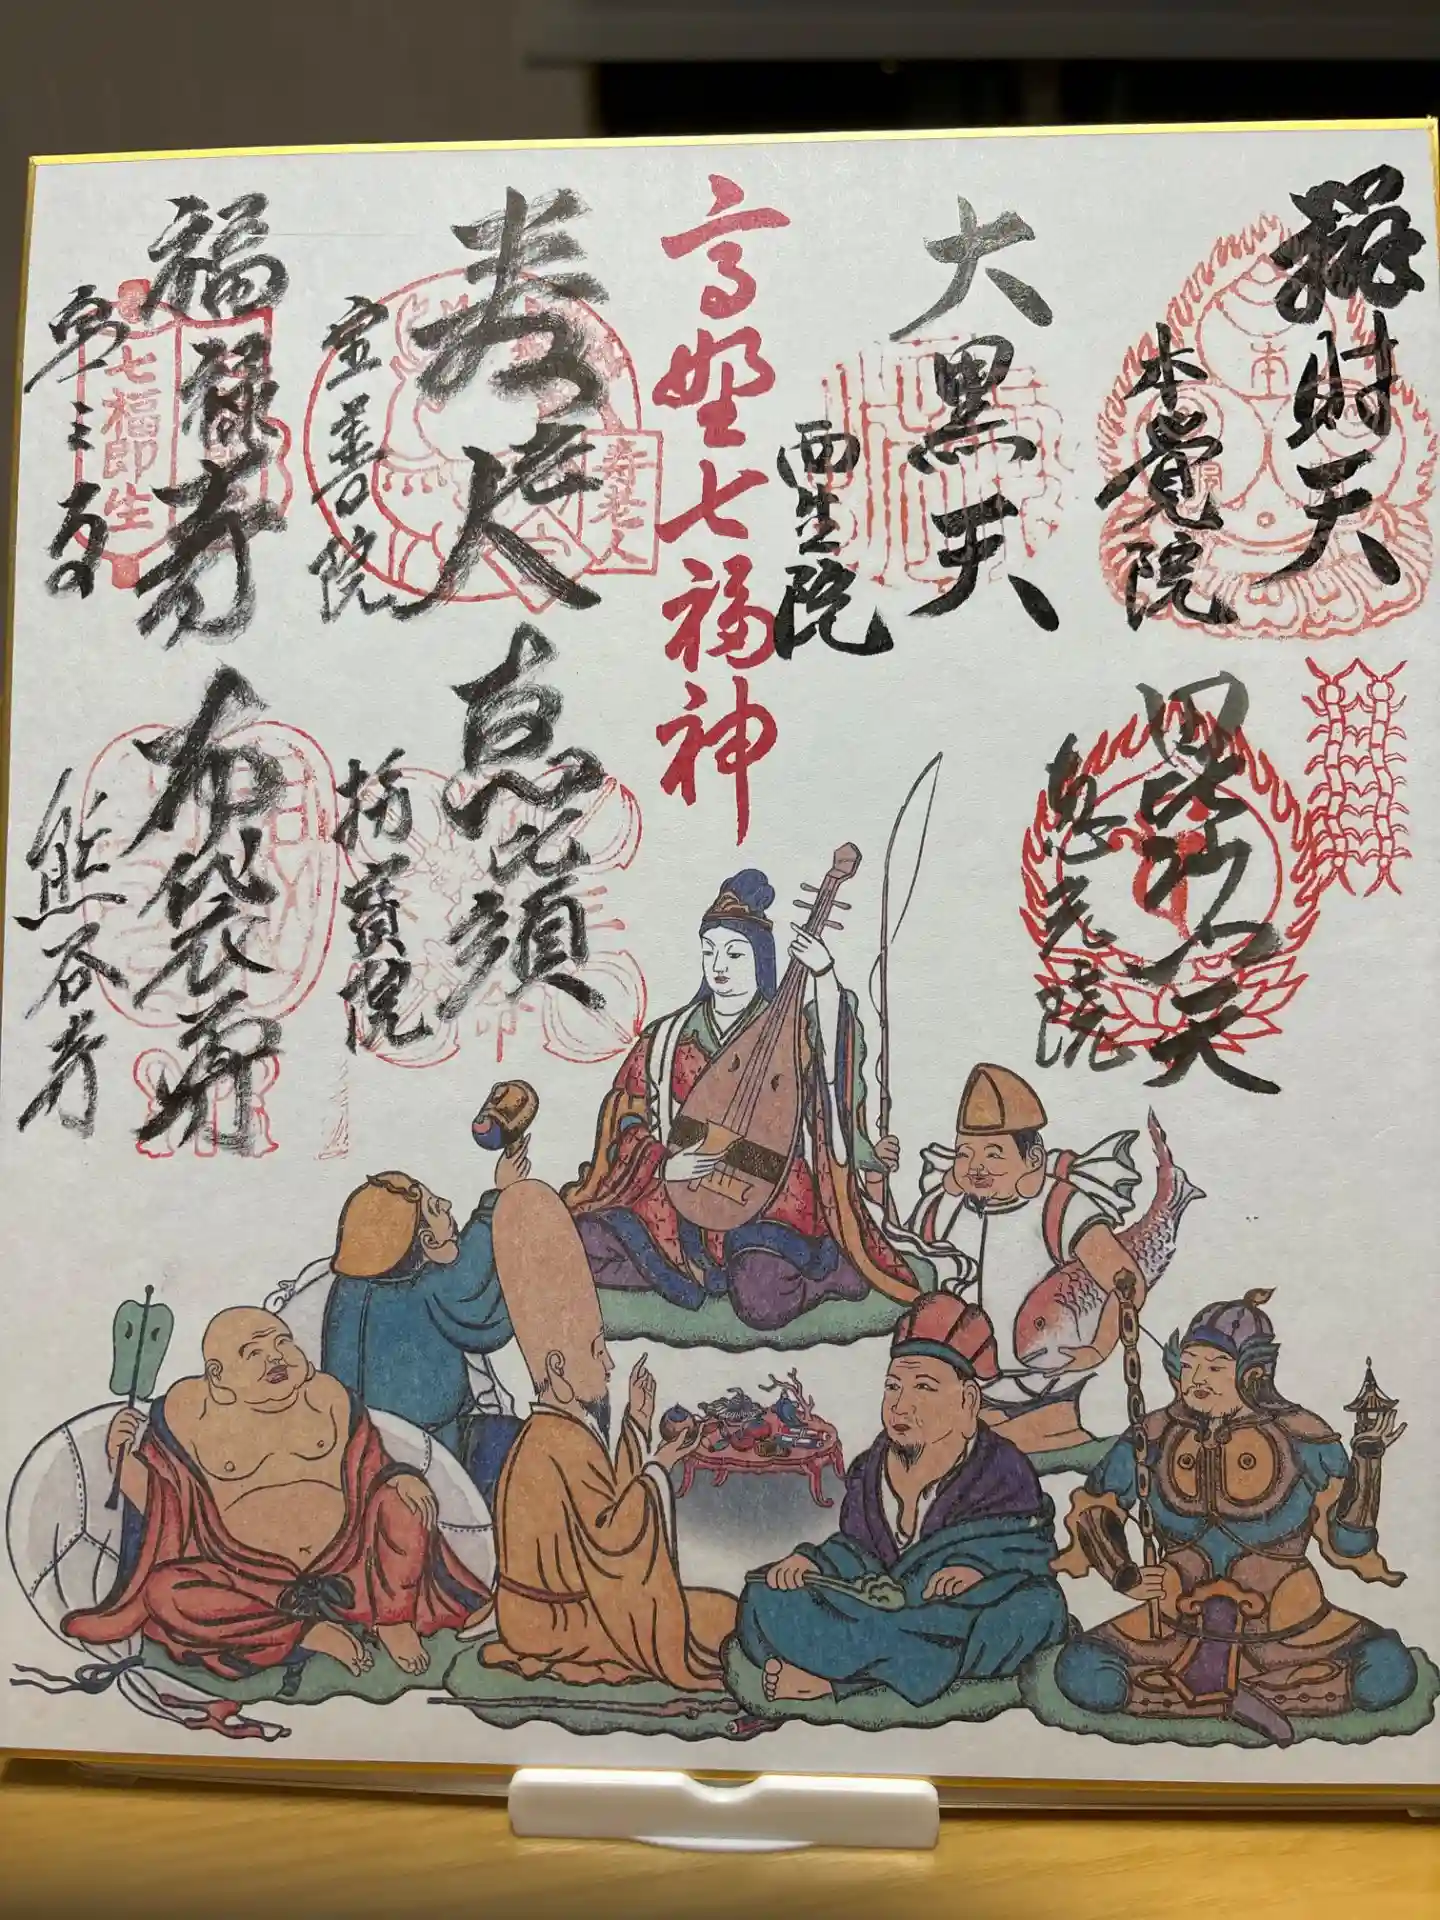 辨財天
本覺院
毘沙門天
恵光院
大黒天
西生院
高野七福神
寿老人
寿老人
宝善院
恵比須
福禄寿
七福即生
布袋尊
熊谷寺